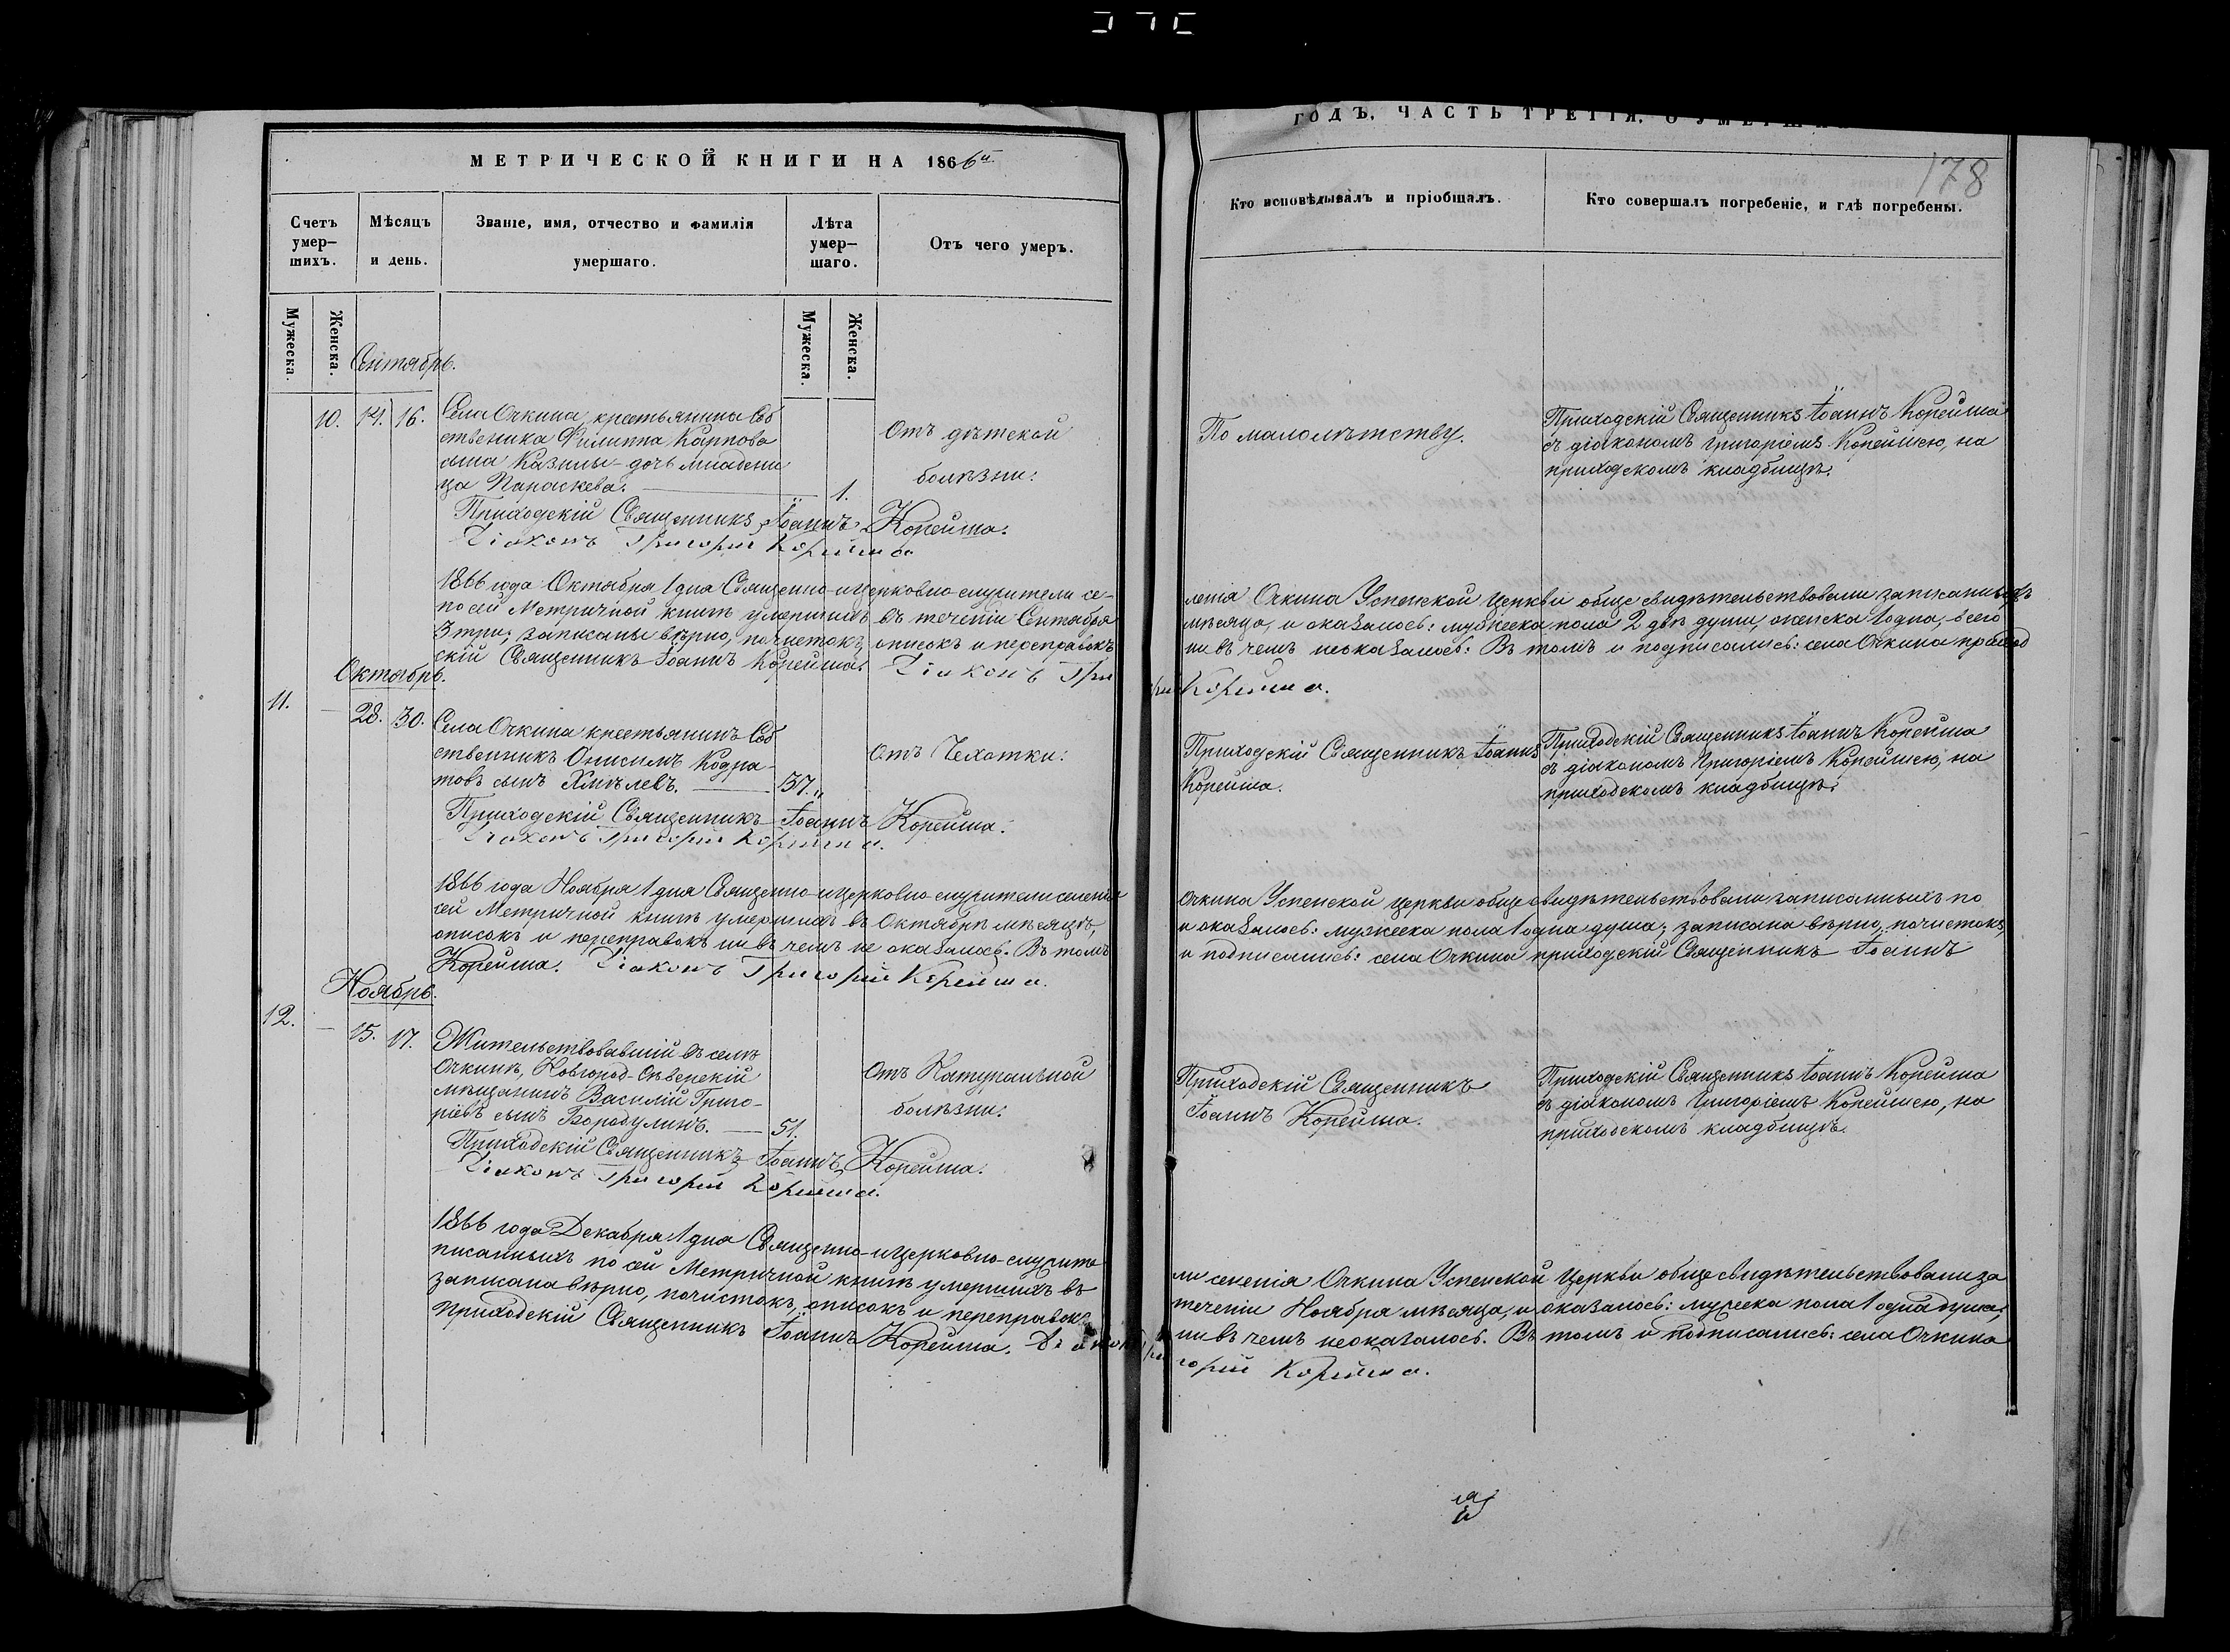 МЕТРИЧЕСКОЙ КНИГИ НА 1866й
Счетъ умер-шихъ.
Мѣсяцъ и день.
Званіе, имя, отчество и фамилія умершаго.
Лѣта умер-шаго.
Отъ чего умеръ.
Мужеска.
Женска.
Мужеска.
Женска.
Сентябрь.
10. 14. 16. Села Очкина крестьянина Соб
ственика Филиппа Карпова
сына Казины дочь младени
ца Параскева. 1.
Отъ дѣтской
болѣзни.
Приходскій Священникъ Іоаннъ Корейша.
Діаконъ Григорій Корейша
1866 года Октября 1 дня Священно-и церковно-служители се-
по сей Метричной книгѣ умершихъ въ теченіи Сентября
3 три; записаны вѣрно, почистокъ, описокъ и переправокъ
скій Священникъ Іоаннъ Корейша. Діаконъ Гри
Октябрь.
11. 28. 30. Села Очкина крестьянинъ Соб
ственникъ Онисимъ Кодра-
товъ сынъ Хмѣлевъ. 37.
Отъ Чехотки.
Приходскій Священникъ Іоаннъ Корейша.
Діаконъ Григорій Корейша.
1866 года Ноября 1 дня Священно-и церковно-служители селенія
сей Метричной книгѣ умершихъ въ Октябрѣ мѣсяцѣ,
описокъ и переправокъ ни въ чемъ не оказалось. Въ томъ
Корейша. Діаконъ Григорій Корейша.
Ноябрь.
12. 15. 17. Жительствовавшій въ селѣ
Очкинѣ, Новгород-Сѣверскій
мѣщанинъ Василій Григо-
ріевъ сынъ Бородулинъ. 51.
Отъ Натуральной
болѣзни.
Приходскій Священникъ Іоаннъ Корейша.
Діаконъ Григорій Корейша.
1866 года Декабря 1 дня Священно-и церковно-служите
писанныхъ по сей Метричной книгѣ умершихъ въ
записана вѣрно, почистокъ, описокъ и переправокъ
приходскій Священникъ Іоаннъ Корейша. Діаконъ Гри
ГОДЪ, ЧАСТЬ ТРЕТІЯ, О
178
Кто исповѣдывалъ и пріобщалъ.
Кто совершалъ погребеніе, и гдѣ погребены.
По малолѣтству.
Приходскій Священникъ Іоаннъ Корейша
съ діакономъ Григоріемъ Корейшею, на
приходскомъ кладбищѣ.
ленія Очкина Успенской Церкви обще свидѣтельствовали записанныхъ
мѣсяца, и оказалось: мужеска пола 2 двѣ души, женска 1 одна, всего
ни въ чемъ неоказалось: Въ томъ и подписались: села Очкина приход
Корейша.
Приходскій Священникъ Іоаннъ
Корейша.
Приходскій Священникъ Іоаннъ Корейша
съ діакономъ Григоріемъ Корейшею, на
приходскомъ кладбищѣ.
Очкина Успенской Церкви обще свидѣтельствовали записанныхъ по
и оказалось: мужеска пола 1 одна душа; записана вѣрно, почистокъ,
и подписались: села Очкина приходскій Священникъ Іоаннъ
Приходскій Священникъ
Іоаннъ Корейша.
Приходскій Священникъ Іоаннъ Корейша
съ діакономъ Григоріемъ Корейшею, на
приходскомъ кладбищѣ.
ли селенія Очкина Успенской Церкви обще свидѣтельствовали за
теченіи Ноября мѣсяца, и оказалось: мужеска пола 1 одна душа;
ни въ чемъ неоказалось. Въ томъ и подписались: села Очкина
горій Корейша.